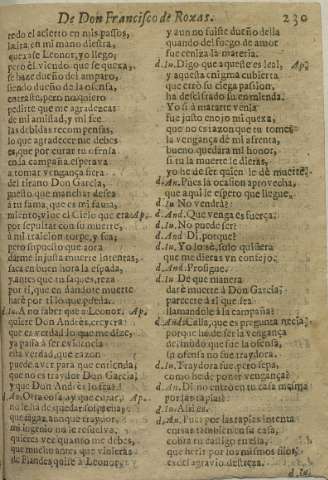 De Don Francisco de Roxas. 230
redo el acierto en mis passos,
la ira en mi mano diestra,
quexase Leonor, yo llego,
pero el viendo que se quexa,
se haze dueño del amparo,
siendo dueño de la ofensa,
entrase, pero no quiero
pedirte que me agradezcas
de mi amistad, y mi fee
las debidas recompensas,
lo que agradecerme debes
es, que por curar tu ofensa
en la campaña esperava
a tomar vengança fiera
del tirano Don Garcia,
puesto que mancha
a tu fama, que es mi fama,
miento, vive el Cielo que era Ap.
por sepultar con su muerte,
a mi traicion torpe, y fea;
pero supuesto que aora
darme injusta muerte intentas,
saca en buen hora la espada,
y antes que mis quexas, reza
por ti, que en dandote muerte
harè por ti lo que pueda.
d. Iu. A no saber que a Leonor. Ap.
quiere Don Andrès, creyera
que es verdad lo que me dize,
y a passa à ser evidencia
esta verdad, que razon
puede aver para que entienda,
que no es traydor Don Garcia,
y que Don Andrès lo sea?
d. An. Otra cosa ay que curar, Ap.
no se ha de quedar
que aunque traydor,
mi ingenio
quieres ver quanto me debes,
que mucho antes que vinieras
de Flandes quise a Leonor,
y aun no fuiste dueño della
quando del fuego de amor
fue ceniza la materia.
d. Iu. Digo que aqueste es leal, Ap.
y aquesta enigma cubierta
que errò su ciega passion,
ha descifrado su enmienda.
Yo si à matarte venia
fue justo enojo mi quexa,
que no es razon que tu tomes
la vengança de mi afrenta,
bueno quedara mi honor,
si tu la muerte le dieras,
yo he de ser quien le dè muerte.
d. An. Pues la ocasion aprovecha,
que aqui le espero que llegue.
d. Iu. No vendrà?
d. And. Que venga es fuerça.
d. Iu. No puede ser?
d. And. Di, porque?
d. Iu. Yo lo sè, solo quisiera
que me dieras vn consejo.
d. And. Prosigue.
d. Iu. De que manera
darè muerte à Don Garcia?
parecere à ti que sea
llamandole à la campaña?
d. And. Calla, que es pregunta necia,
porque ha de ser la vengança
del modo que fue la ofensa,
tu ofensa no fue traydora.
d. Iu. Traydora fue, pero sepa,
como he de poner vengança?
d. An. Di, no entrò en tu casa misma
por las tapias?
d. Iu. Assi es.
d. An. Pues por las tapias intenta
entrar tambien en su casa,
cobra tu castigo en ella,
que herir por los mismos filos,
es el agravio destreza.
d. Iu.